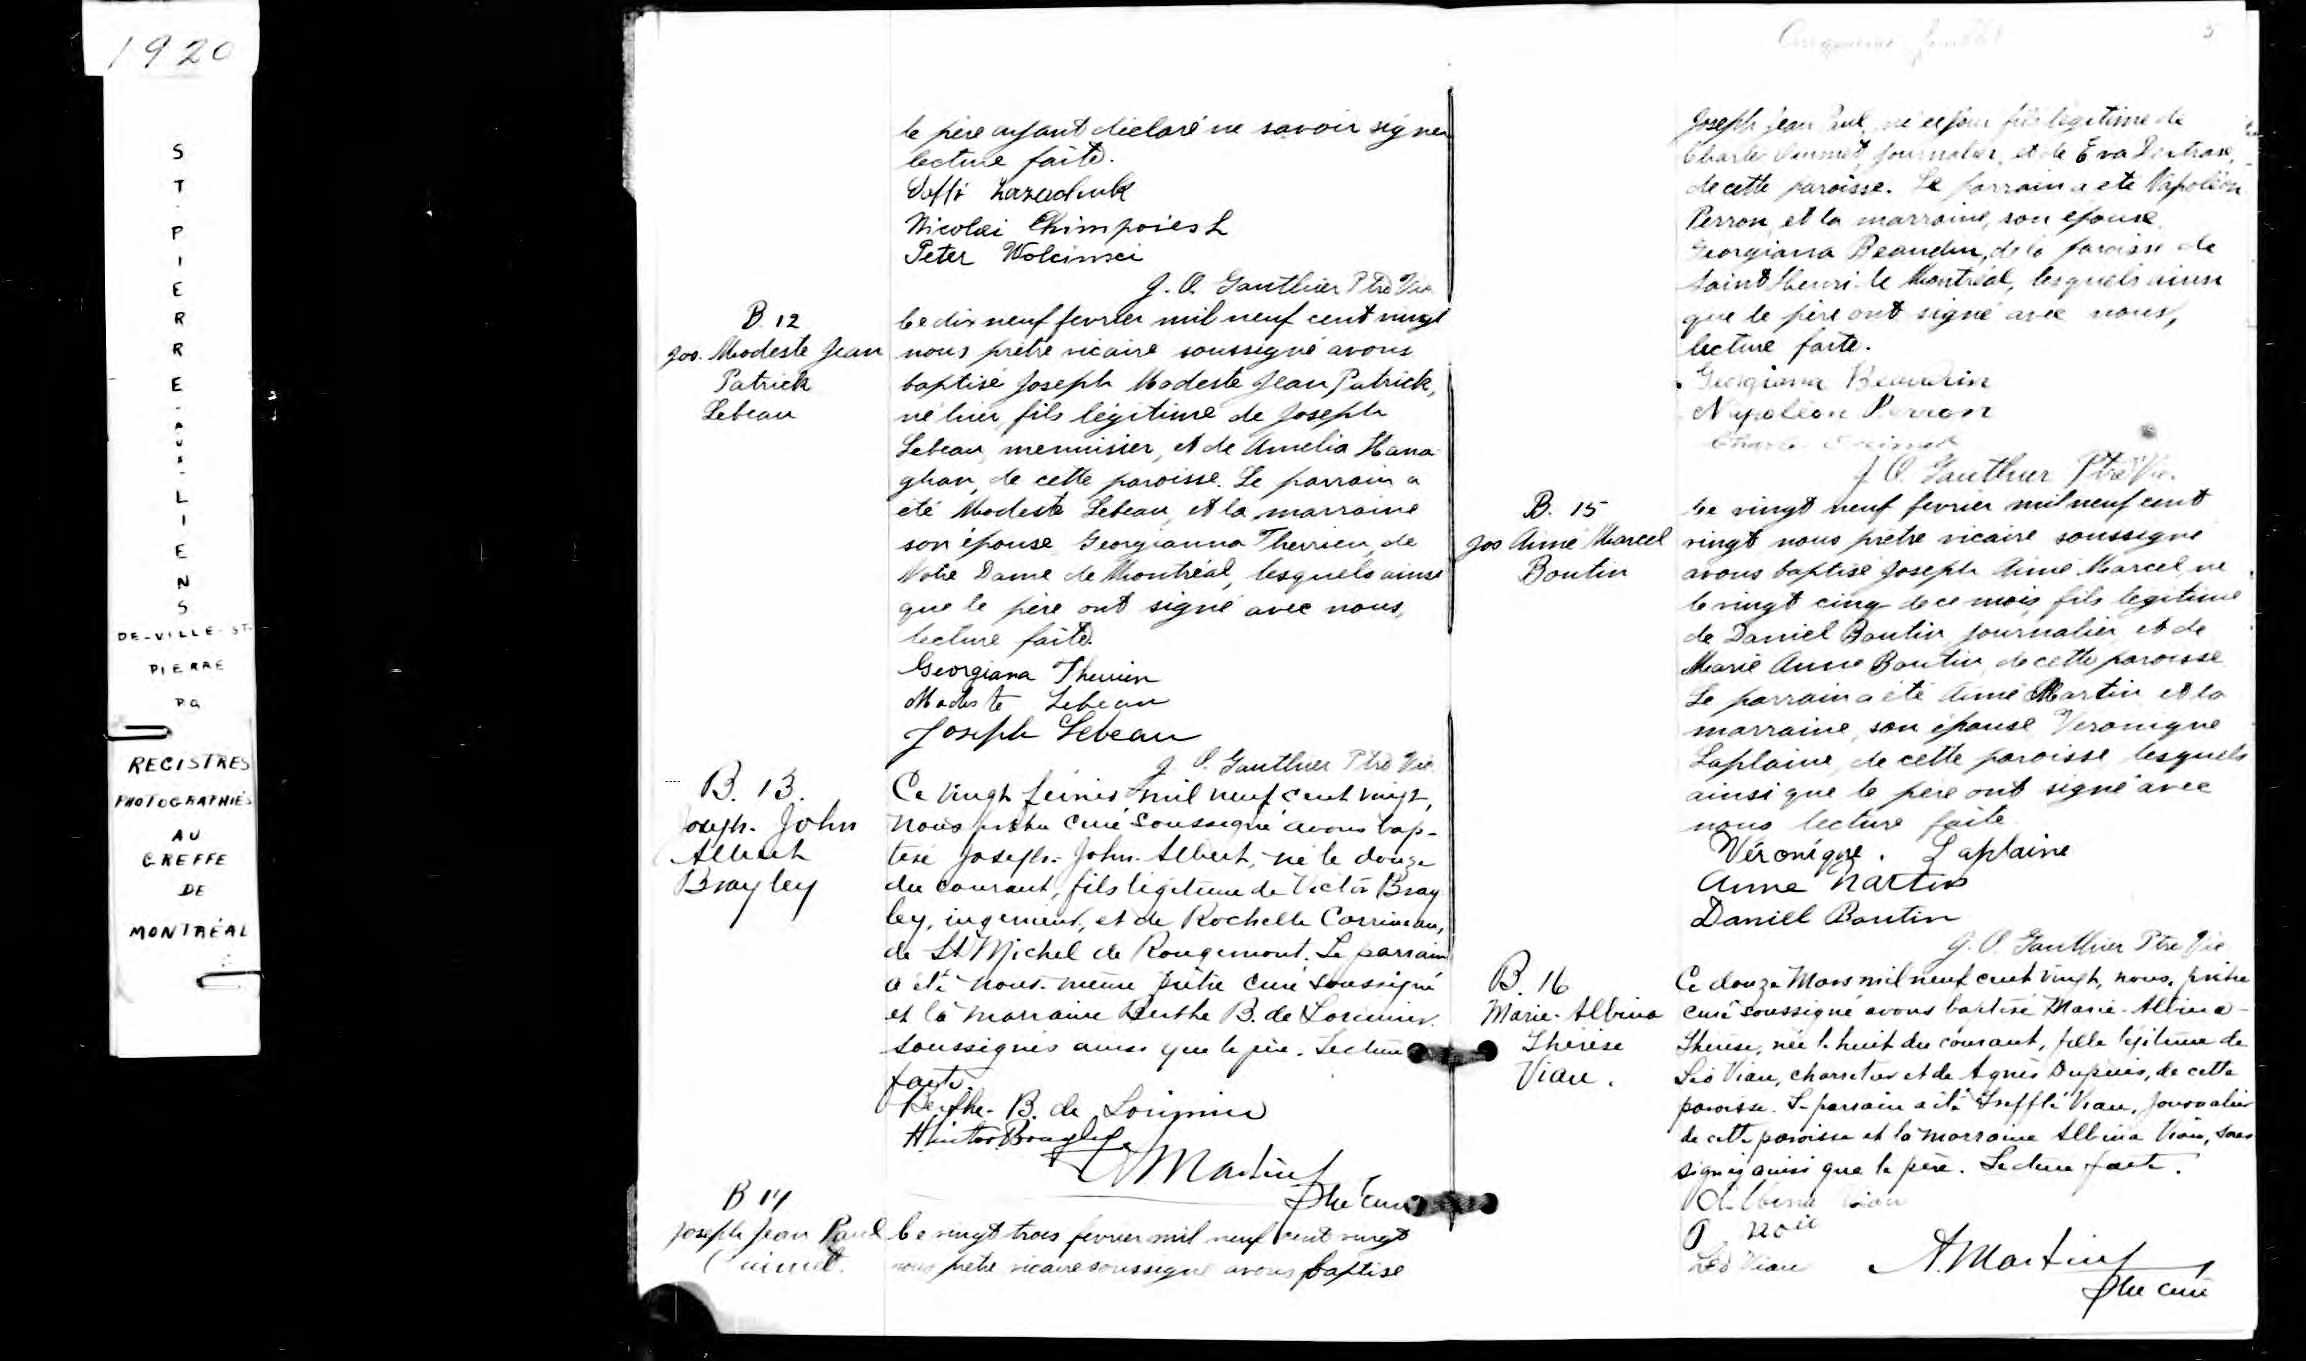 1920
ST-PIERRE-AUX-LIENS
DE-VILLE-ST-
PIERRE
P.Q
REGISTRES
PHOTOGRAPHIÉS
AU
GREFFE
DE
MONTRÉAL
le père ayant déclaré ne savoir signer
lecture faite.
Nicolai
Peter
J. O. Gauthier Ptre Vic.
B. 12
Jos. Modeste Jean
Patrick
Lebeau
Le dix neuf fevrier mil neuf cent vingt
nous prêtre vicaire soussigné avons
baptisé Joseph Modeste Jean Patrick,
né hier, fils légitime de Joseph
Lebeau, menuisier, et de Amelia Hana-
ghan, de cette paroisse. Le parrain a
été Modeste Lebeau, et la marraine
son épouse Georgianna Therrien, de
Notre Dame de Montréal, lesquels ainsi
que le père ont signé avec nous,
lecture faite.
Georgiana Therrien
Modeste Lebeau
Joseph Lebeau
J. O. Gauthier Ptre Vic
B. 13.
Joseph. John
Albert
Brayley
Ce vingt février mil neuf cent vingt,
Nous prêtre curé soussigné avons bap-
tisé Joseph-John-Albert, né le douze
du courant, fils légitime de Victor Bray
ley, ingénieur, et de Rochelle Corriveau,
de St Michel de Rougemont. Le parrain
a été nous-même prêtre curé soussigné
et la marraine Berthe B. de Lorimier
soussignés ainsi que le père. Lecture
faite.
Berthe B. de Lorimier
Brayley
A Martin
Ptre curé
B 14
Joseph Jean Paul
Ouimet.
Le vingt trois fevrier mil neuf cent vingt
nous prêtre vicaire soussigné avons baptisé
Cinquième feuillet
5
Joseph Jean Paul, né ce jour fils légitime de
Charles Ouimet, journalier, et de Eva
de cette paroisse. Le parrain a été Napoléon
Perron, et la marraine, son épouse
Georgiana Beaudin, de la paroisse de
Saint Henri de Montréal, lesquels ainsi
que le père ont signé avec nous,
lecture faite.
Georgiana Beaudin
Napoléon Perron
Charles Ouimet
J. O. Gauthier Ptre Vic.
B. 15
Jos Aimé Marcel
Boutin
Le vingt neuf fevrier mil neuf cent
vingt nous prêtre vicaire soussigné
avons baptisé Joseph Aimé Marcel, né
le vingt cinq de ce mois, fils légitime
de Daniel Boutin journalier et de
Marie Anne Boutin, de cette paroisse
Le parrain a été Aimé Martin et la
marraine, son épouse Veronique
Laplaine, de cette paroisse lesquels
ainsi que le père ont signé avec
nous lecture faite
Véronique. Laplaine
Martin
Daniel Boutin
J. O. Gauthier Ptre Vic
B. 16
Marie-Albina
Thérèse
Viau.
Ce douze Mars mil neuf cent vingt, nous, prêtre
curé soussigné avons baptisé Marie-Albina-
Thérèse, née le huit du courant, fille légitime de
Léo Viau, charretier et de Agnès Dupuis, de cette
paroisse. Le parrain a été Trefflé Viau, journalier
de cette paroisse et la marraine Albina Viau, sous
signés ainsi que le père. Lecture faite.
Albina Viau
Léo Viau
A. Martin
Ptre curé